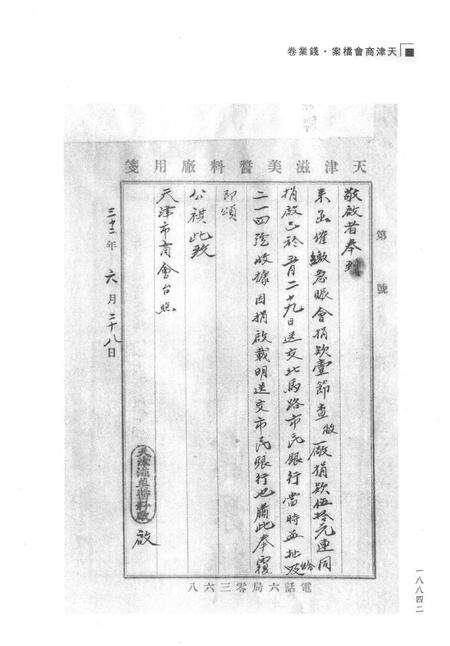 天津商會檔案·錢業卷
天津滋美醬料廠用箋
第　號
敬啟者奉到
來函催繳急賑會捐欵壹節查敝廠捐欵伍拾元連同
捐啟已於五月二十九日送交北馬路市民銀行當時並批給
二一四號收據因捐啟載明送交市民銀行也肅此奉覆
即頌
公祺此致
天津市商會台照
天津滋美醬料廠
啟
三十三年六月二十八日
電話六局零三六八
一八八四二